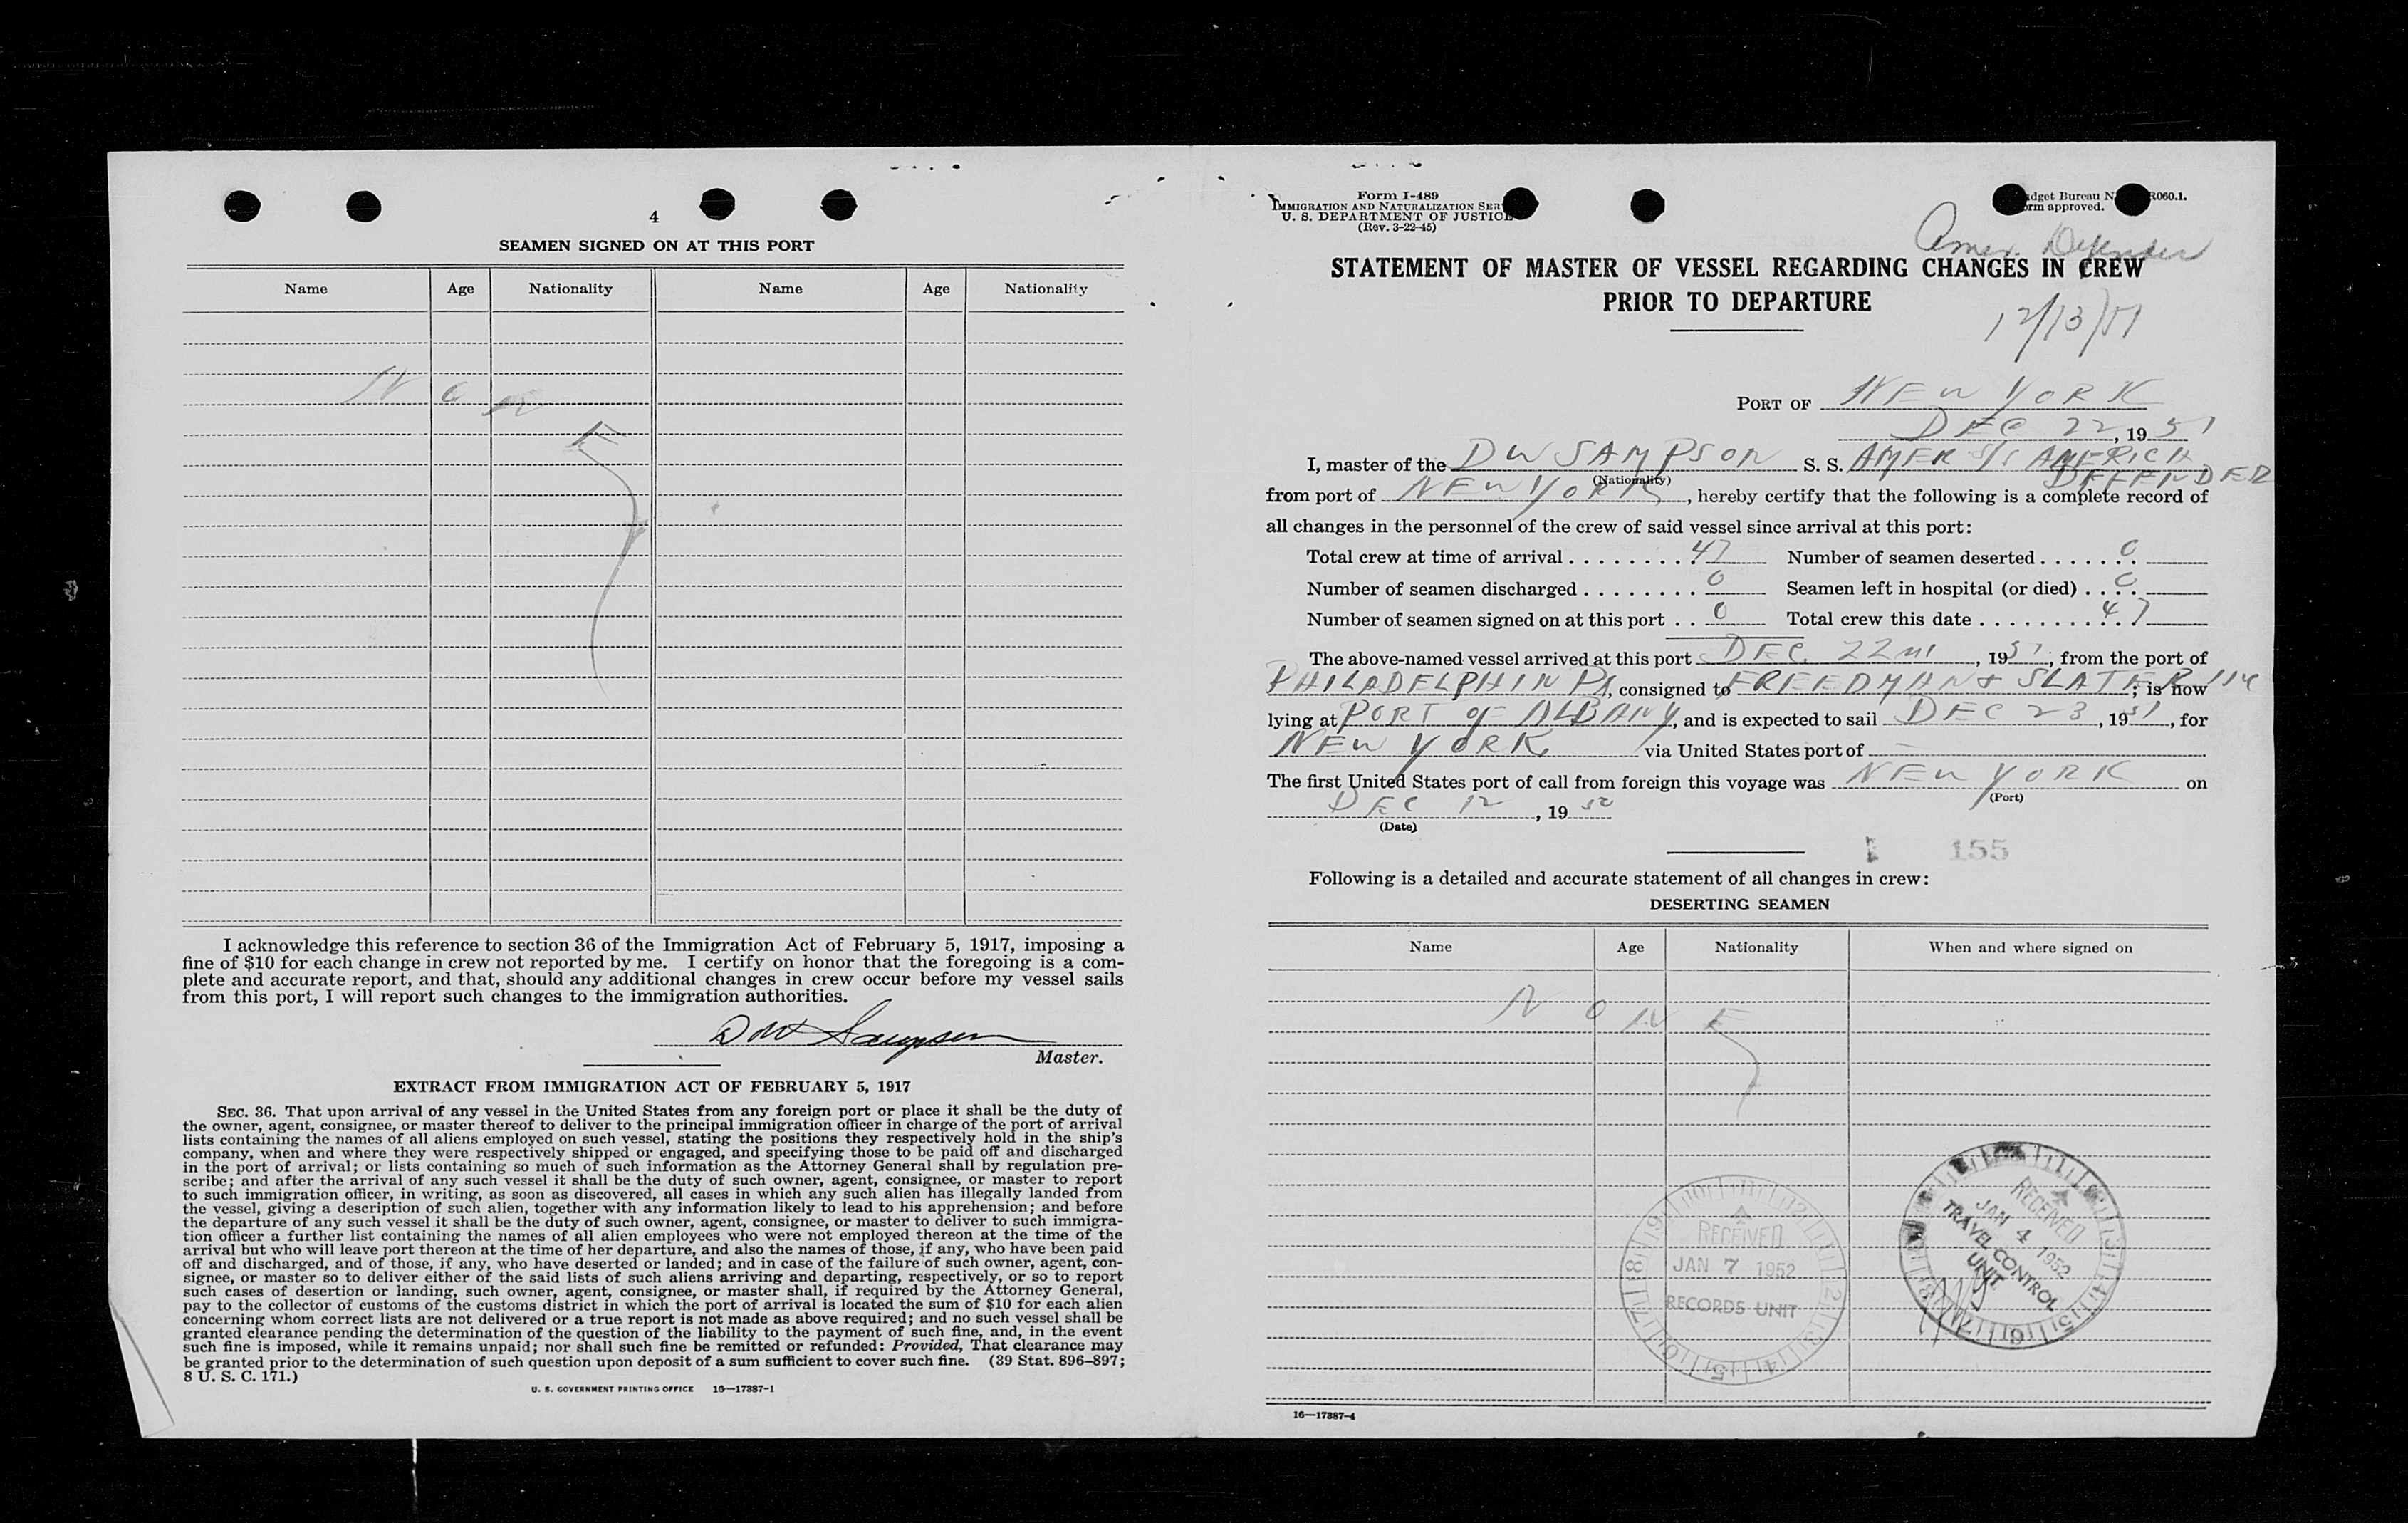 4
SEAMEN SIGNED ON AT THIS PORT
Name Age Nationality Name Age Nationality
NONE
I acknowledge this reference to section 36 of the Immigration Act of February 5, 1917, imposing a
fine of $10 for each change in crew not reported by me. I certify on honor that the foregoing is a com-
plete and accurate report, and that, should any additional changes in crew occur before my vessel sails
from this port, I will report such changes to the immigration authorities.
DW Sampson
Master.
EXTRACT FROM IMMIGRATION ACT OF FEBRUARY 5, 1917
SEC. 36. That upon arrival of any vessel in the United States from any foreign port or place it shall be the duty of
the owner, agent, consignee, or master thereof to deliver to the principal immigration officer in charge of the port of arrival
lists containing the names of all aliens employed on such vessel, stating the positions they respectively hold in the ship's
company, when and where they were respectively shipped or engaged, and specifying those to be paid off and discharged
in the port of arrival; or lists containing so much of such information as the Attorney General shall by regulation pre-
scribe; and after the arrival of any such vessel it shall be the duty of such owner, agent, consignee, or master to report
to such immigration officer, in writing, as soon as discovered, all cases in which any such alien has illegally landed from
the vessel, giving a description of such alien, together with any information likely to lead to his apprehension; and before
the departure of any such vessel it shall be the duty of such owner, agent, consignee, or master to deliver to such immigra-
tion officer a further list containing the names of all alien employees who were not employed thereon at the time of the
arrival but who will leave port thereon at the time of her departure, and also the names of those, if any, who have been paid
off and discharged, and of those, if any, who have deserted or landed; and in case of the failure of such owner, agent, con-
signee, or master so to deliver either of the said lists of such aliens arriving and departing, respectively, or so to report
such cases of desertion or landing, such owner, agent, consignee, or master shall, if required by the Attorney General,
pay to the collector of customs of the customs district in which the port of arrival is located the sum of $10 for each alien
concerning whom correct lists are not delivered or a true report is not made as above required; and no such vessel shall be
granted clearance pending the determination of the question of the liability to the payment of such fine, and, in the event
such fine is imposed, while it remains unpaid; nor shall such fine be remitted or refunded: Provided, That clearance may
be granted prior to the determination of such question upon deposit of a sum sufficient to cover such fine. (39 Stat. 896–897;
8 U. S. C. 171.)
U. S. GOVERNMENT PRINTING OFFICE 16—17387-1
Form I-489
IMMIGRATION AND NATURALIZATION SER
U. S. DEPARTMENT OF JUSTICE
(Rev. 3-22-45)
dget Bureau N R060.1.
orm approved.
Amer. Defender
STATEMENT OF MASTER OF VESSEL REGARDING CHANGES IN CREW
PRIOR TO DEPARTURE
12/13/51
PORT OF NEW YORK
DEC 22, 19 51
I, master of the DW SAMPSON S. S. AMER S/S AMERICA
DEFENDER
(Nationality)
from port of NEW YORK, hereby certify that the following is a complete record of
all changes in the personnel of the crew of said vessel since arrival at this port:
Total crew at time of arrival . . . . . . . . . 47 Number of seamen deserted . . . . . . . 0
Number of seamen discharged . . . . . . . . 0 Seamen left in hospital (or died) . . . . 0
Number of seamen signed on at this port . . 0 Total crew this date . . . . . . . . . . . 47
The above-named vessel arrived at this port DEC. 22, 1951, from the port of
PHILADELPHIA PA, consigned to FREEDMAN & SLATER; is now
lying at PORT of ALBANY, and is expected to sail DEC 23, 1951, for
NEW YORK via United States port of —
The first United States port of call from foreign this voyage was NEW YORK on
(Port)
DEC 12, 19 52
(Date)
155
Following is a detailed and accurate statement of all changes in crew:
DESERTING SEAMEN
Name Age Nationality When and where signed on
NONE
RECEIVED
JAN 7 1952
RECORDS UNIT
RECEIVED
JAN 4 1952
TRAVEL CONTROL
UNIT
16—17387-4